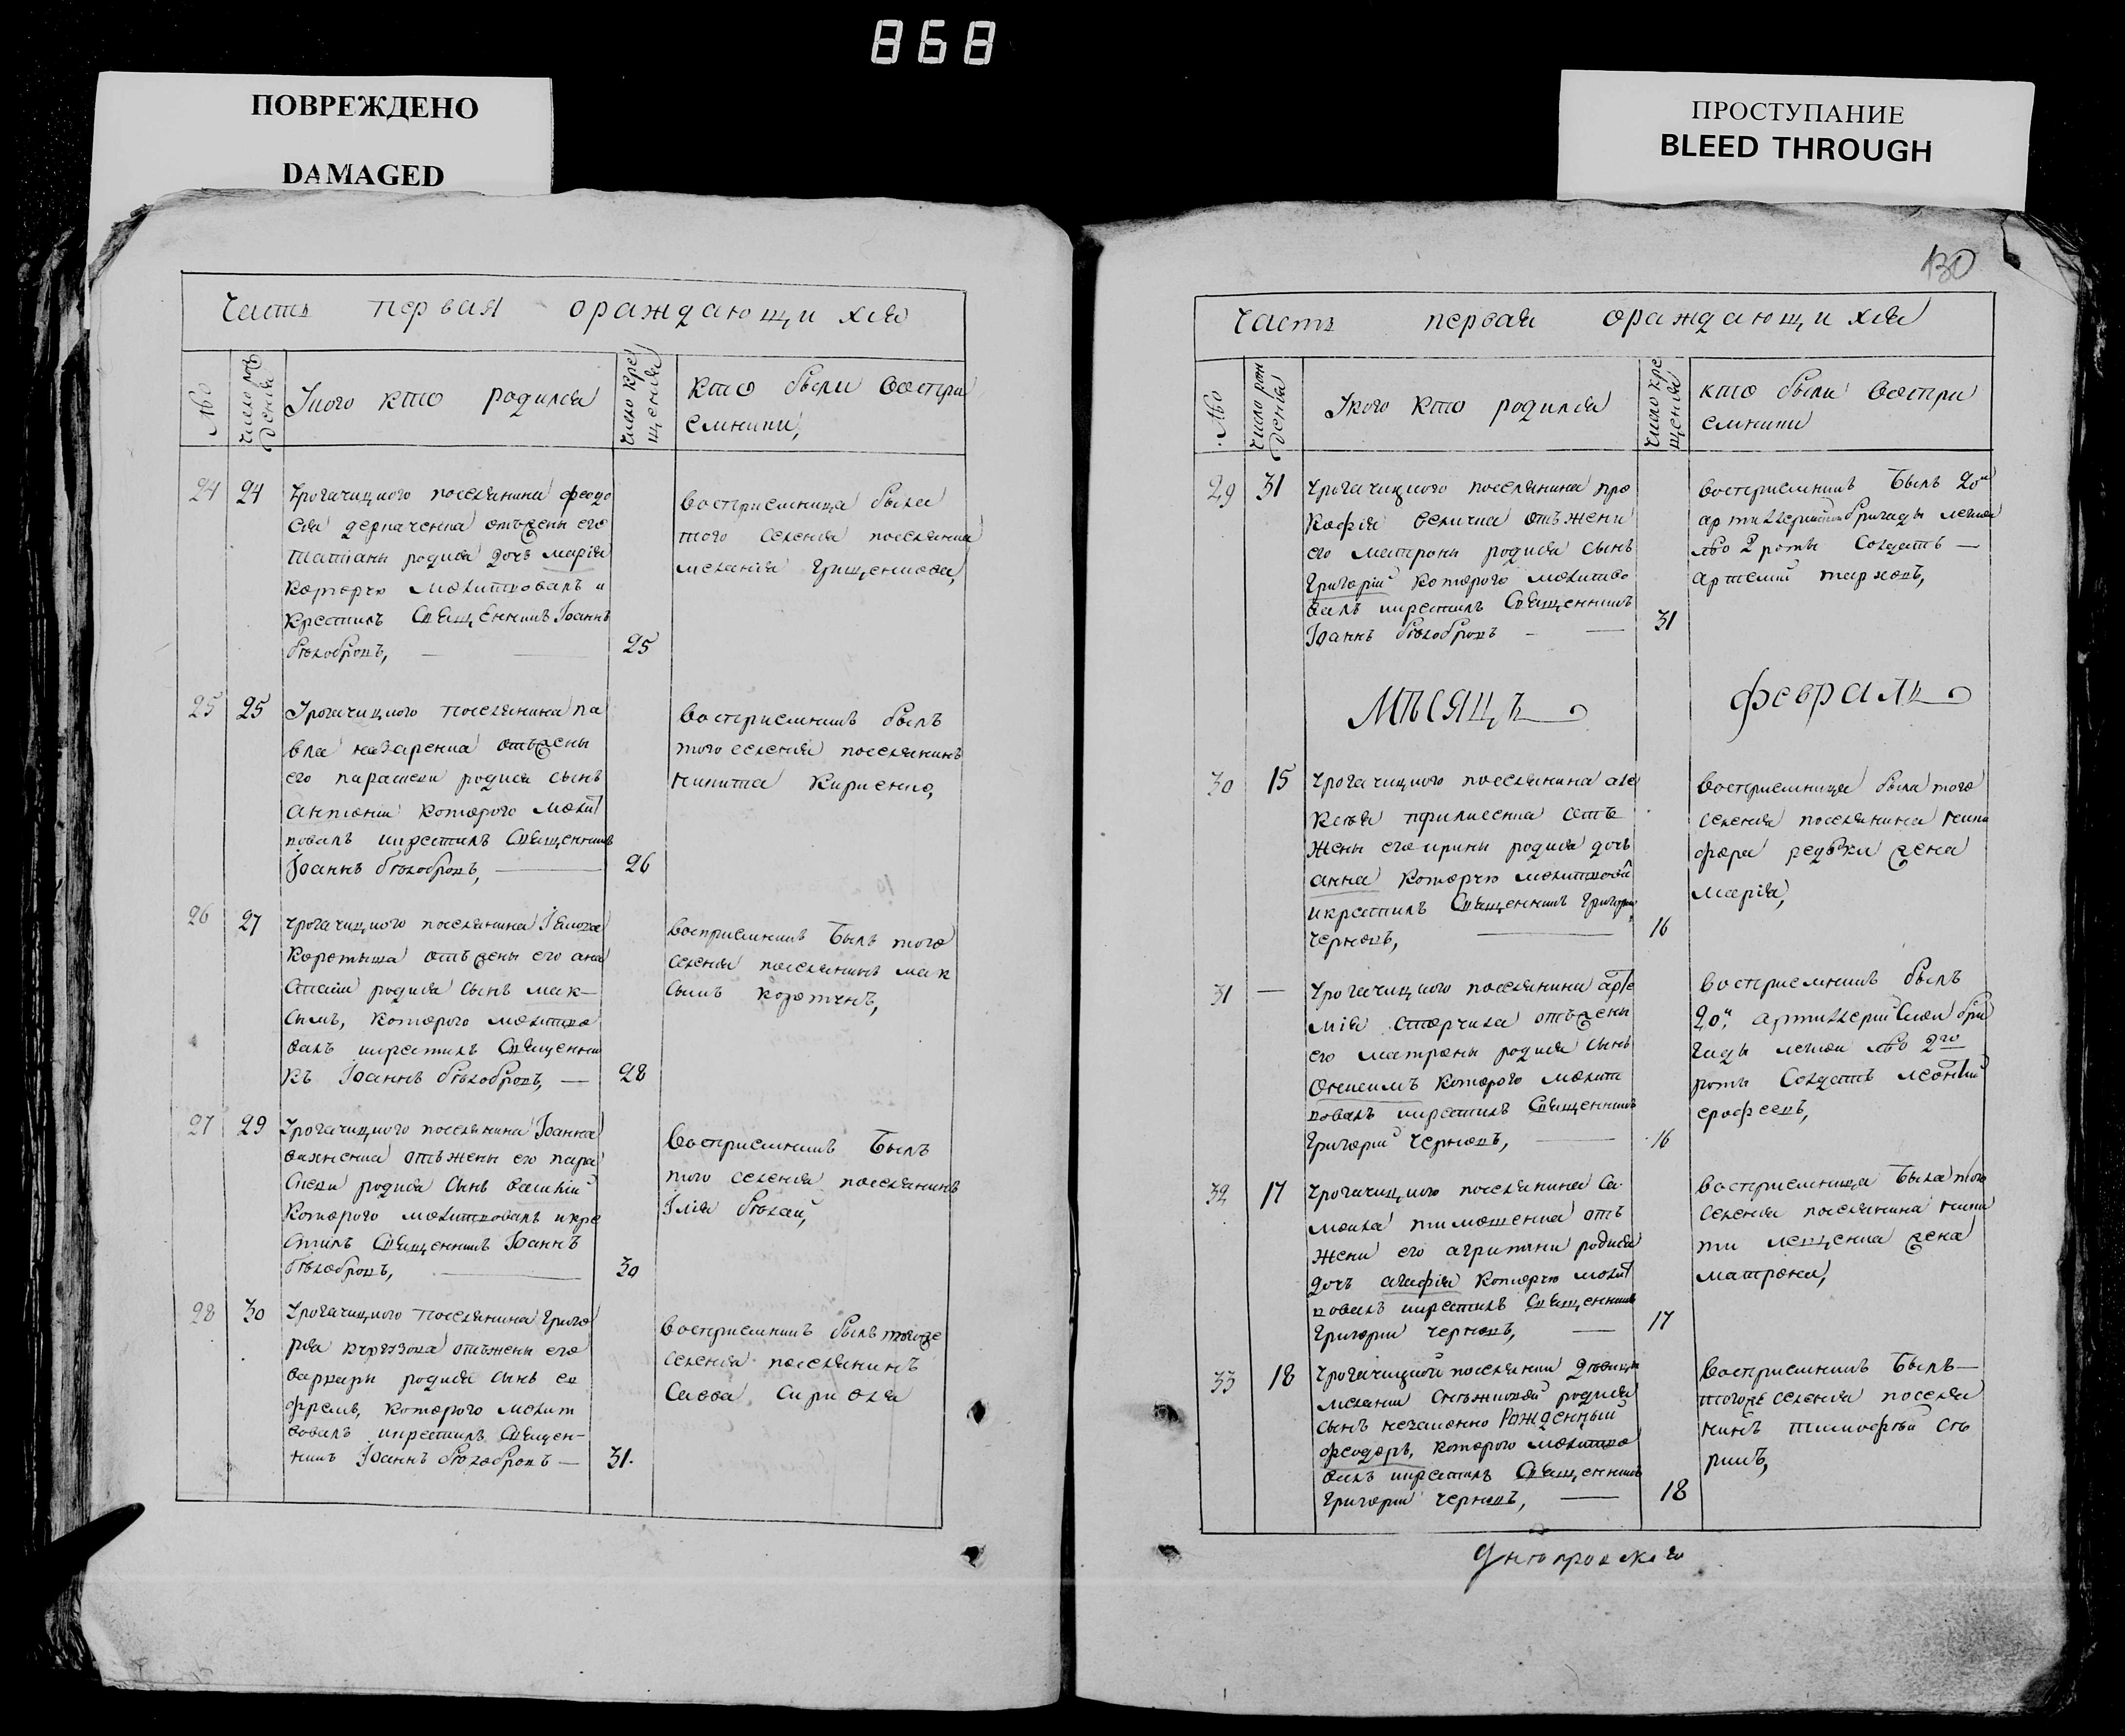 868
ПОВРЕЖДЕНО
DAMAGED
ПРОСТУПАНИЕ
BLEED THROUGH
Часть первая ораждающихся
№во
число рож
дения
Укого кто родился
число кре
щения
кто были воспри
емники,
24 24
Урогачицкого поселянина феодо
сия дергаченка отъжены его
татіаны родися дочь марія
которую молитвовалъ и
крестилъ Священникъ Іоаннъ
бѣлобровъ, — 25
восприемница была
того селенія поселянка
меланія Грищенкова,
25 25
Урогачицкого поселянина па
вла назаренка отъжены
его параскеви родися сынъ
антоній которого молит
вовалъ икрестилъ Священникъ
Іоаннъ бѣлобровъ, — 26
восприемникъ былъ
того селенія поселянинъ
никита Кириенко,
26 27
Урогачицкого поселянина Іакова
коротыша отъжены его ана
стасіи родися сынъ мак-
симъ, которого молитво
валъ икрестилъ Священни
къ Іоаннъ бѣлобровъ, — 28
восприемникъ былъ того
селенія поселянинъ мак
симъ
27 29
Урогачицкого поселянина Іоанна
вахненка отъжены его пара
скеви родися сынъ василій
которого молитвовалъ икре
стилъ Священникъ Іоаннъ
бѣлобровъ, — 30
восприемникъ былъ
того селенія поселянинъ
Ілія бѣлай,
28 30
Урогачицкого поселянина Григо
рія отъжены его
варвары родися сынъ ев
фремъ, которого молит
вовалъ икрестилъ Священ-
никъ Іоаннъ бѣлобровъ — 31.
восприемникъ былъ тогоже
селенія поселянинъ
Савва
130
Часть первая ораждающихся
№во
число рож
дения
Укого кто родился
число кре
щения
кто были воспри
емники
29 31
Урогачицкого поселянина про
кофія величка отъжени
его матроны родися сынъ
Григорій которого молитво
валъ икрестилъ Священникъ
Іоаннъ бѣлобровъ — 31
восприемникъ былъ 20й
артиллерийской бригады легкой
№во 2 роты Солдатъ —
артемій
Мѣсяцъ февраль
30 15
Урогачицкого поселянина але
ксѣя отъ
жены его ирины родися дочь
анна которую молитвовал
икрестилъ Священникъ Григорій
черновъ, — 16
восприемница была того
селенія поселянина ники
фора редѣки жена
марія,
31 —
Урогачицкого поселянина арте
мія сторчака отъжены
его матроны родися сынъ
Онисимъ которого молит
вовалъ икрестилъ Священникъ
Григорій черновъ, — 16
восприемникъ былъ
20й артиллерийской бри
гады легкой №во 2го
роты Солдатъ леонтій
ерофеевъ,
32 17
Урогачицкого поселянина са
мойла тимошенка отъ
жени его агрипини родися
дочь агафія которую молит
вовалъ икрестилъ Священникъ
Григорій черновъ, — 17
восприемница была того
селенія поселянина ники
ти лещенка жена
матрона,
33 18
Урогачицкой поселянки дѣвицы
меланіи родися
сынъ незаконно Рожденный
феодоръ, которого молитво
валъ икрестилъ Священникъ
Григорій черновъ, — 18
восприемникъ былъ —
тогоже селенія поселя
нинъ тимофѣй
Днепровского